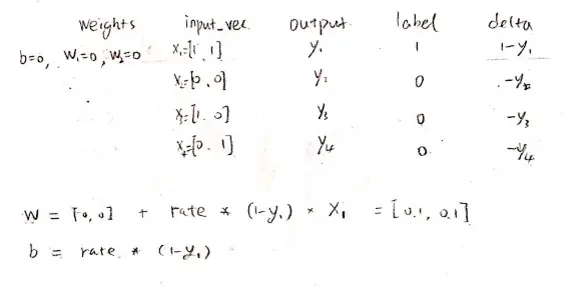 weights input_vec output label delta
b=0, W₁=0, W₂=0 X₁=[1, 1] y₁ 1 1-y₁
X₂=[0, 0] y₂ 0 -y₂
X₃=[1, 0] y₃ 0 -y₃
X₄=[0, 1] y₄ 0 -y₄
W = [0, 0] + rate * (1-y₁) * X₁ = [0.1, 0.1]
b = rate * (1-y₁)